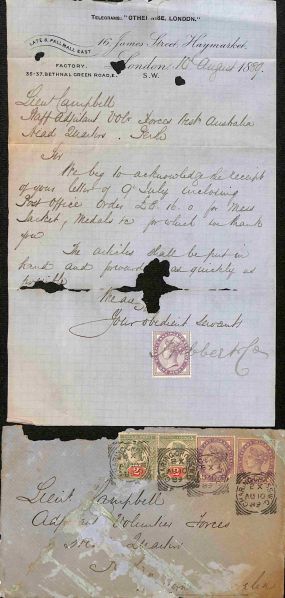 TELEGRAMS: "OTHE        SE, LONDON."
LATE 8, PALL MALL EAST
16, James Street, Haymarket,
FACTORY.
35-37, BETHNAL GREEN ROAD, E.
London, August 1889.
S.W.
Lieut Campbell
Staff Adjutant Volr Forces West Australia
Head Quarters. Perth
Sir
We beg to acknowledge the receipt
of your letter of 9th July inclosing
Post Office Order for Mess
Jacket, Medals &c for which we thank
you
The articles shall be put in
hand and forward as quickly as
possible
We are
Your obedient Servants
& Co
Lieut Campbell
Adjutant Volunteer Forces
Head Quarters